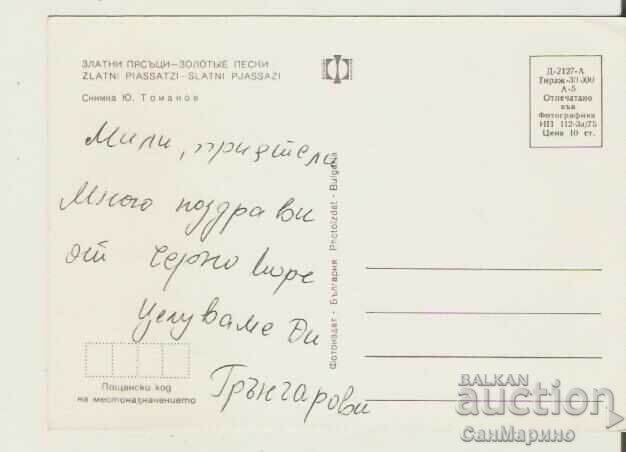 ЗЛАТНИ ПЯСЪЦИ—ЗОЛОТЫЕ ПЕСКИ
ZLATNI PIASSATZI—SLATNI PJASSAZI
Снимка Ю. Томанов
Д-2127-А
Тираж-30 000
А-5
Отпечатано
във
Фотографика
ИП 112-За/75
Цена 10 ст.
Мили, приятели
Много поздрави
от Черно море
Целуваме Ви
Грънчарови
Фотоиздат - България Photoizdat - Bulgaria
Пощенски код
на местоназначението
BALKAN
auction
СанМарино